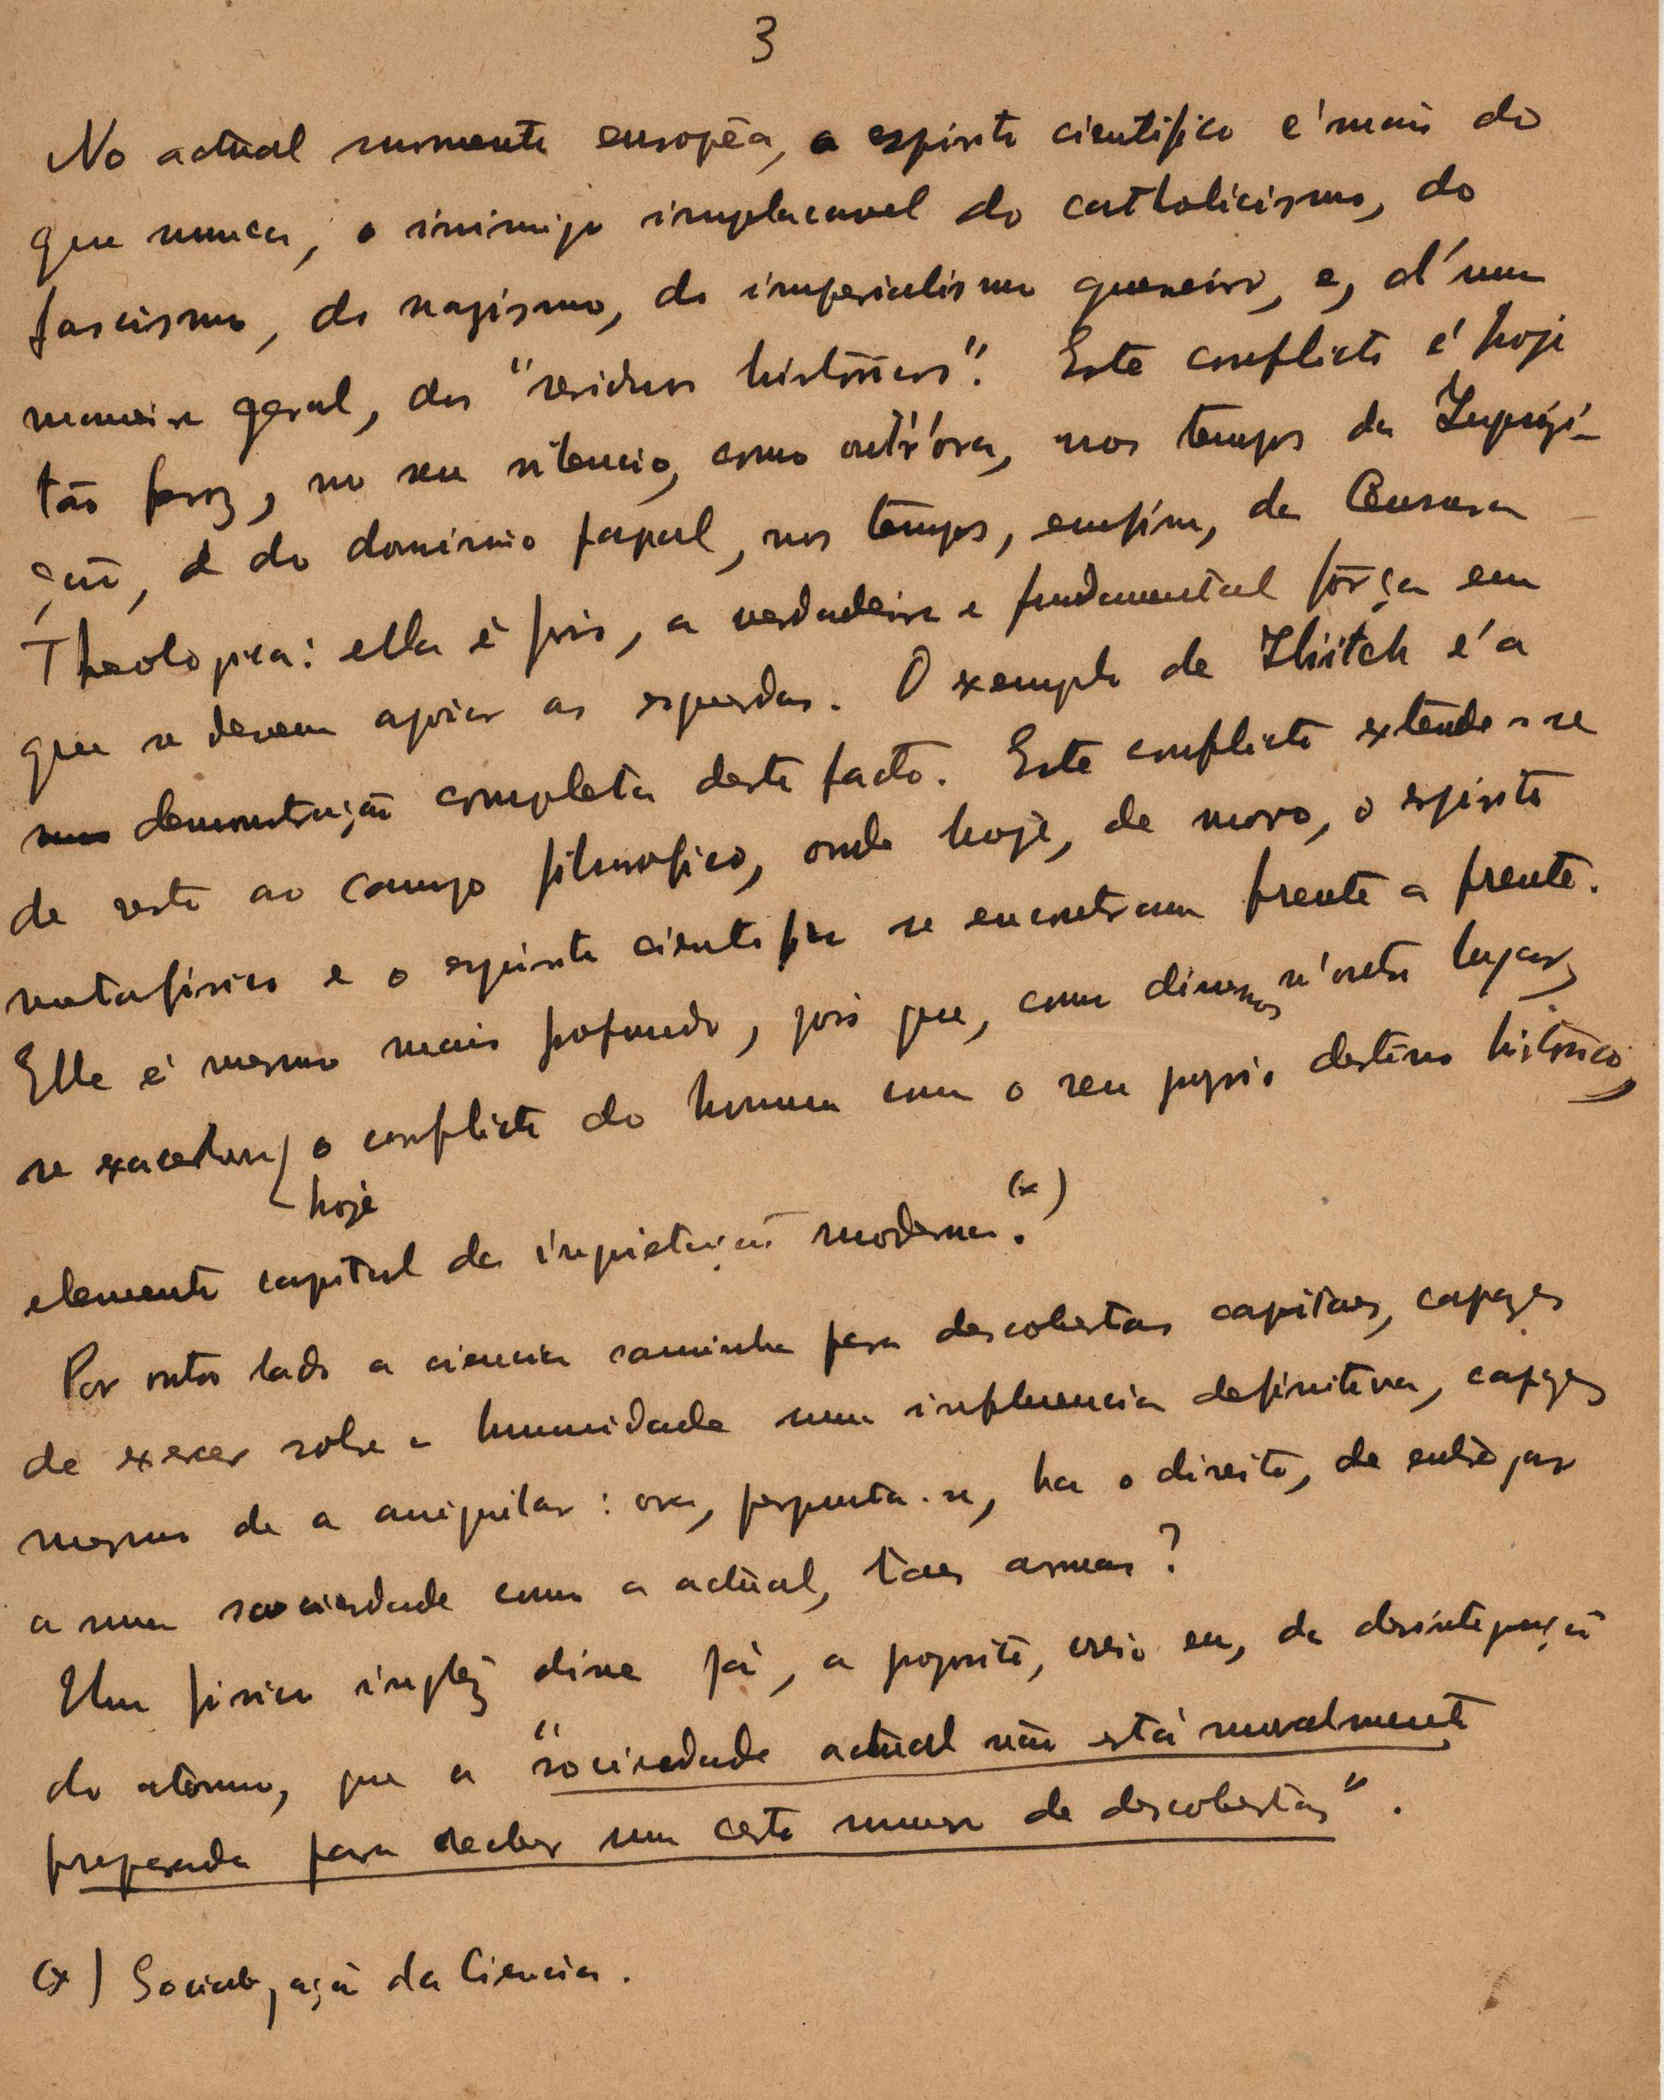 3
No actual momento européa, o espirito cientifico é mais do
que nunca, o inimigo implacavel do catholicismo, do
fascismo, do nazismo, do imperialismo guerreiro, e, d'uma
maneira geral, dos "residuos históricos". Este conflicto é hoje
tão feroz, no seu silencio, como outr'óra, nos tempos da Inquizi-
ção, e do dominio papal, nos tempos, emfim, da Censura
Theologica: ella é pois, a verdadeira e fundamental fôrça em
que se devem apoiar as esquerdas. O exemplo de Ilitch é a
demonstração completa deste facto. Este conflicto extende-se
de resto ao campo filosofico, onde hoje, de novo, o espirito
metafisico e o espirito cientifico se encontram frente a frente.
Elle é mesmo mais profundo, pois que, como dissemos n'outro lugar,
se exacerbou hoje o conflicto do homem com o seu proprio destino historico,
elemento capital da inquietação moderna. (x)
Por outro lado a ciencia caminha para descobertas capitaes, capazes
de exercer sobre a humanidade uma influencia definitiva, capazes
mesmo de a aniquilar: ora, pergunta-se, ha o direito, de entregar
a uma sociedade como a actual, taes armas?
Um fisico inglêz disse já, a proposito, creio eu, da desintegração
do atomo, que a "sociedade actual não está moralmente
preparada para receber um certo numero de descobertas".
(x) Socialização da Ciencia.